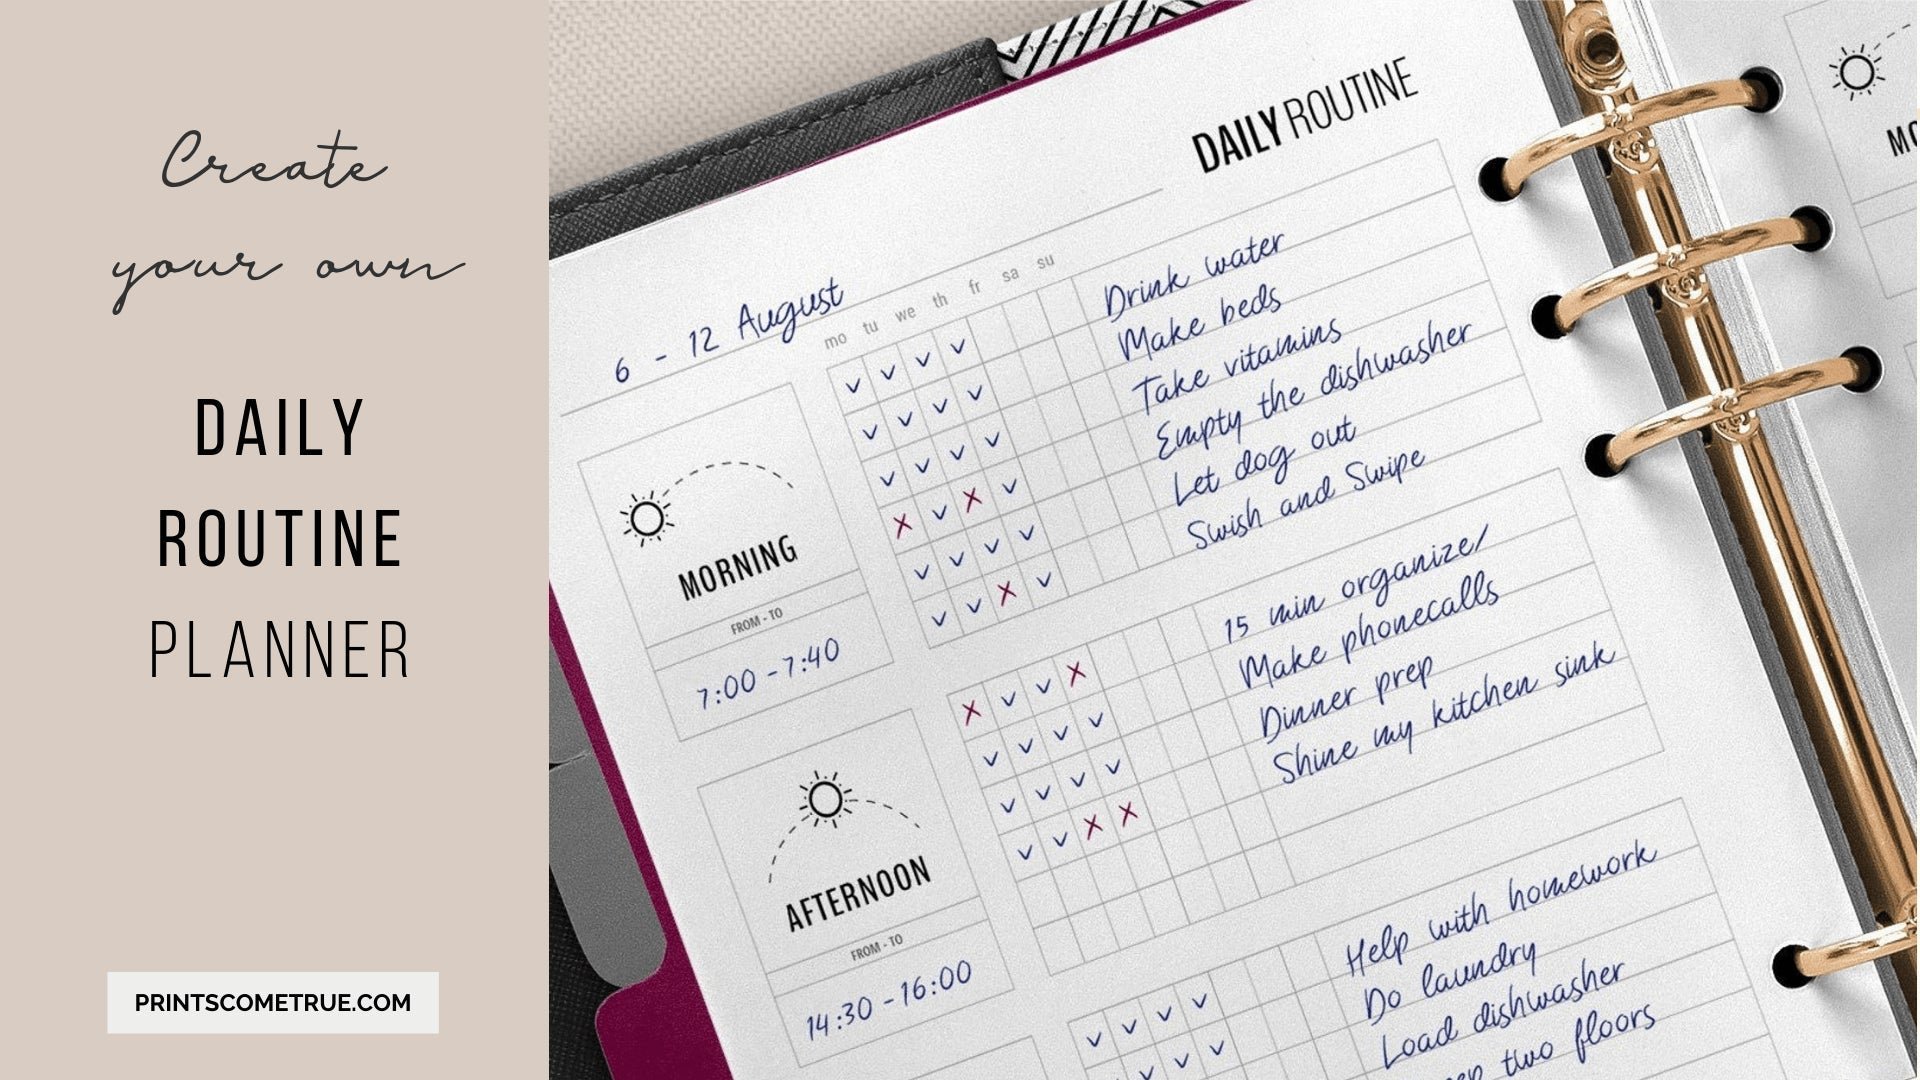 Create
your own
DAILY
ROUTINE
PLANNER
PRINTSCOMETRUE.COM
DAILY ROUTINE
6 - 12 August
mo tu we th fr sa su
MORNING
FROM - TO
7:00 - 7:40
v v v v Drink water
v v v v Make beds
v v v v Take vitamins
x v x v Empty the dishwasher
v v v v Let dog out
v v x v Swish and Swipe
AFTERNOON
FROM - TO
14:30 - 16:00
x v v x 15 min organize/
v v v v Make phonecalls
v v v v Dinner prep
v v x x Shine my kitchen sink
v v v v Help with homework
v v v Do laundry
Load dishwasher
two floors